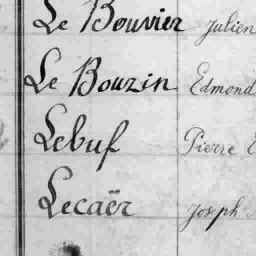 Le Bouvier Julien
Le Bouzin Edmond
Lebuf Pierre E
Lecaër Joseph